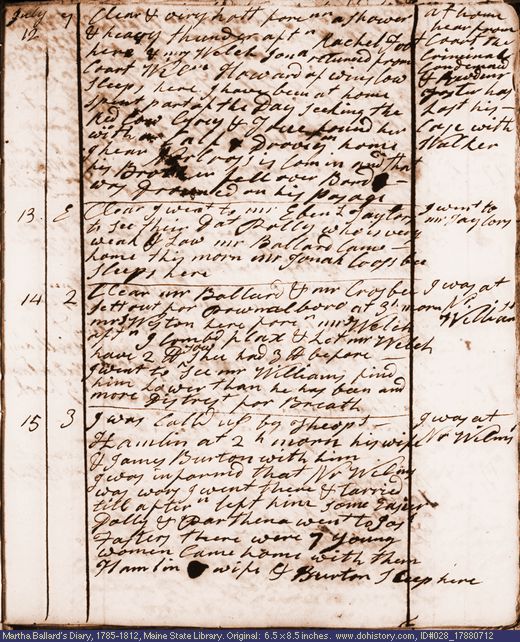 July 7 Clear & very hott fore noon a shower at home
12 & heavy thunder aft n Rachel Foot hear from
here & mr Welch Jona returned from Coart the
Coart Wm Howard of winslow Criminals
Sleeps here. I have been at home Condemnd
Spent part of the Day seeking the & 
red Cow Cyrus & I have found her Foster has
with a Calf & Drove them home lost his
I hear mr Cross is Come in and that Case with
his Brother in fell over Board Walker
was Drouned on his pasage
13. E Clear I went to mr Eben Taylors I went to
to See their Da Polly who is very mr Taylors
weak & Low mr Ballard Came
home this morn mr Jonah Crosbee
Sleeps here
14 2 Clear mr Ballard & mr Crosbee I was at
sett out for Pownalboro at 3 h morn Mr
mrs Weston here fore n mrs Welch Williams
aft n I Combd flax & Let mr Welch
have 2 lb Shee had 3 lb before
I went to See mr Williams find
him Lower than he has been and
more Distrest for Breath
15 3 I was Calld up by Theops I was at
Hamlin at 2 h morn his wife Mr Wilms
& James Burton with him
I was informd that Mr Wilms
was wors I went there & tarried
till after n left him Some Easier
Dolly & Parthena went to Jos
Fosters there were 7 young
women Came home with them
Hamlin & wife & Burton Sleep here
Martha Ballard's Diary, 1785-1812, Maine State Library. Original: 6.5 x 8.5 inches. www.dohistory.com, ID#028_17880712